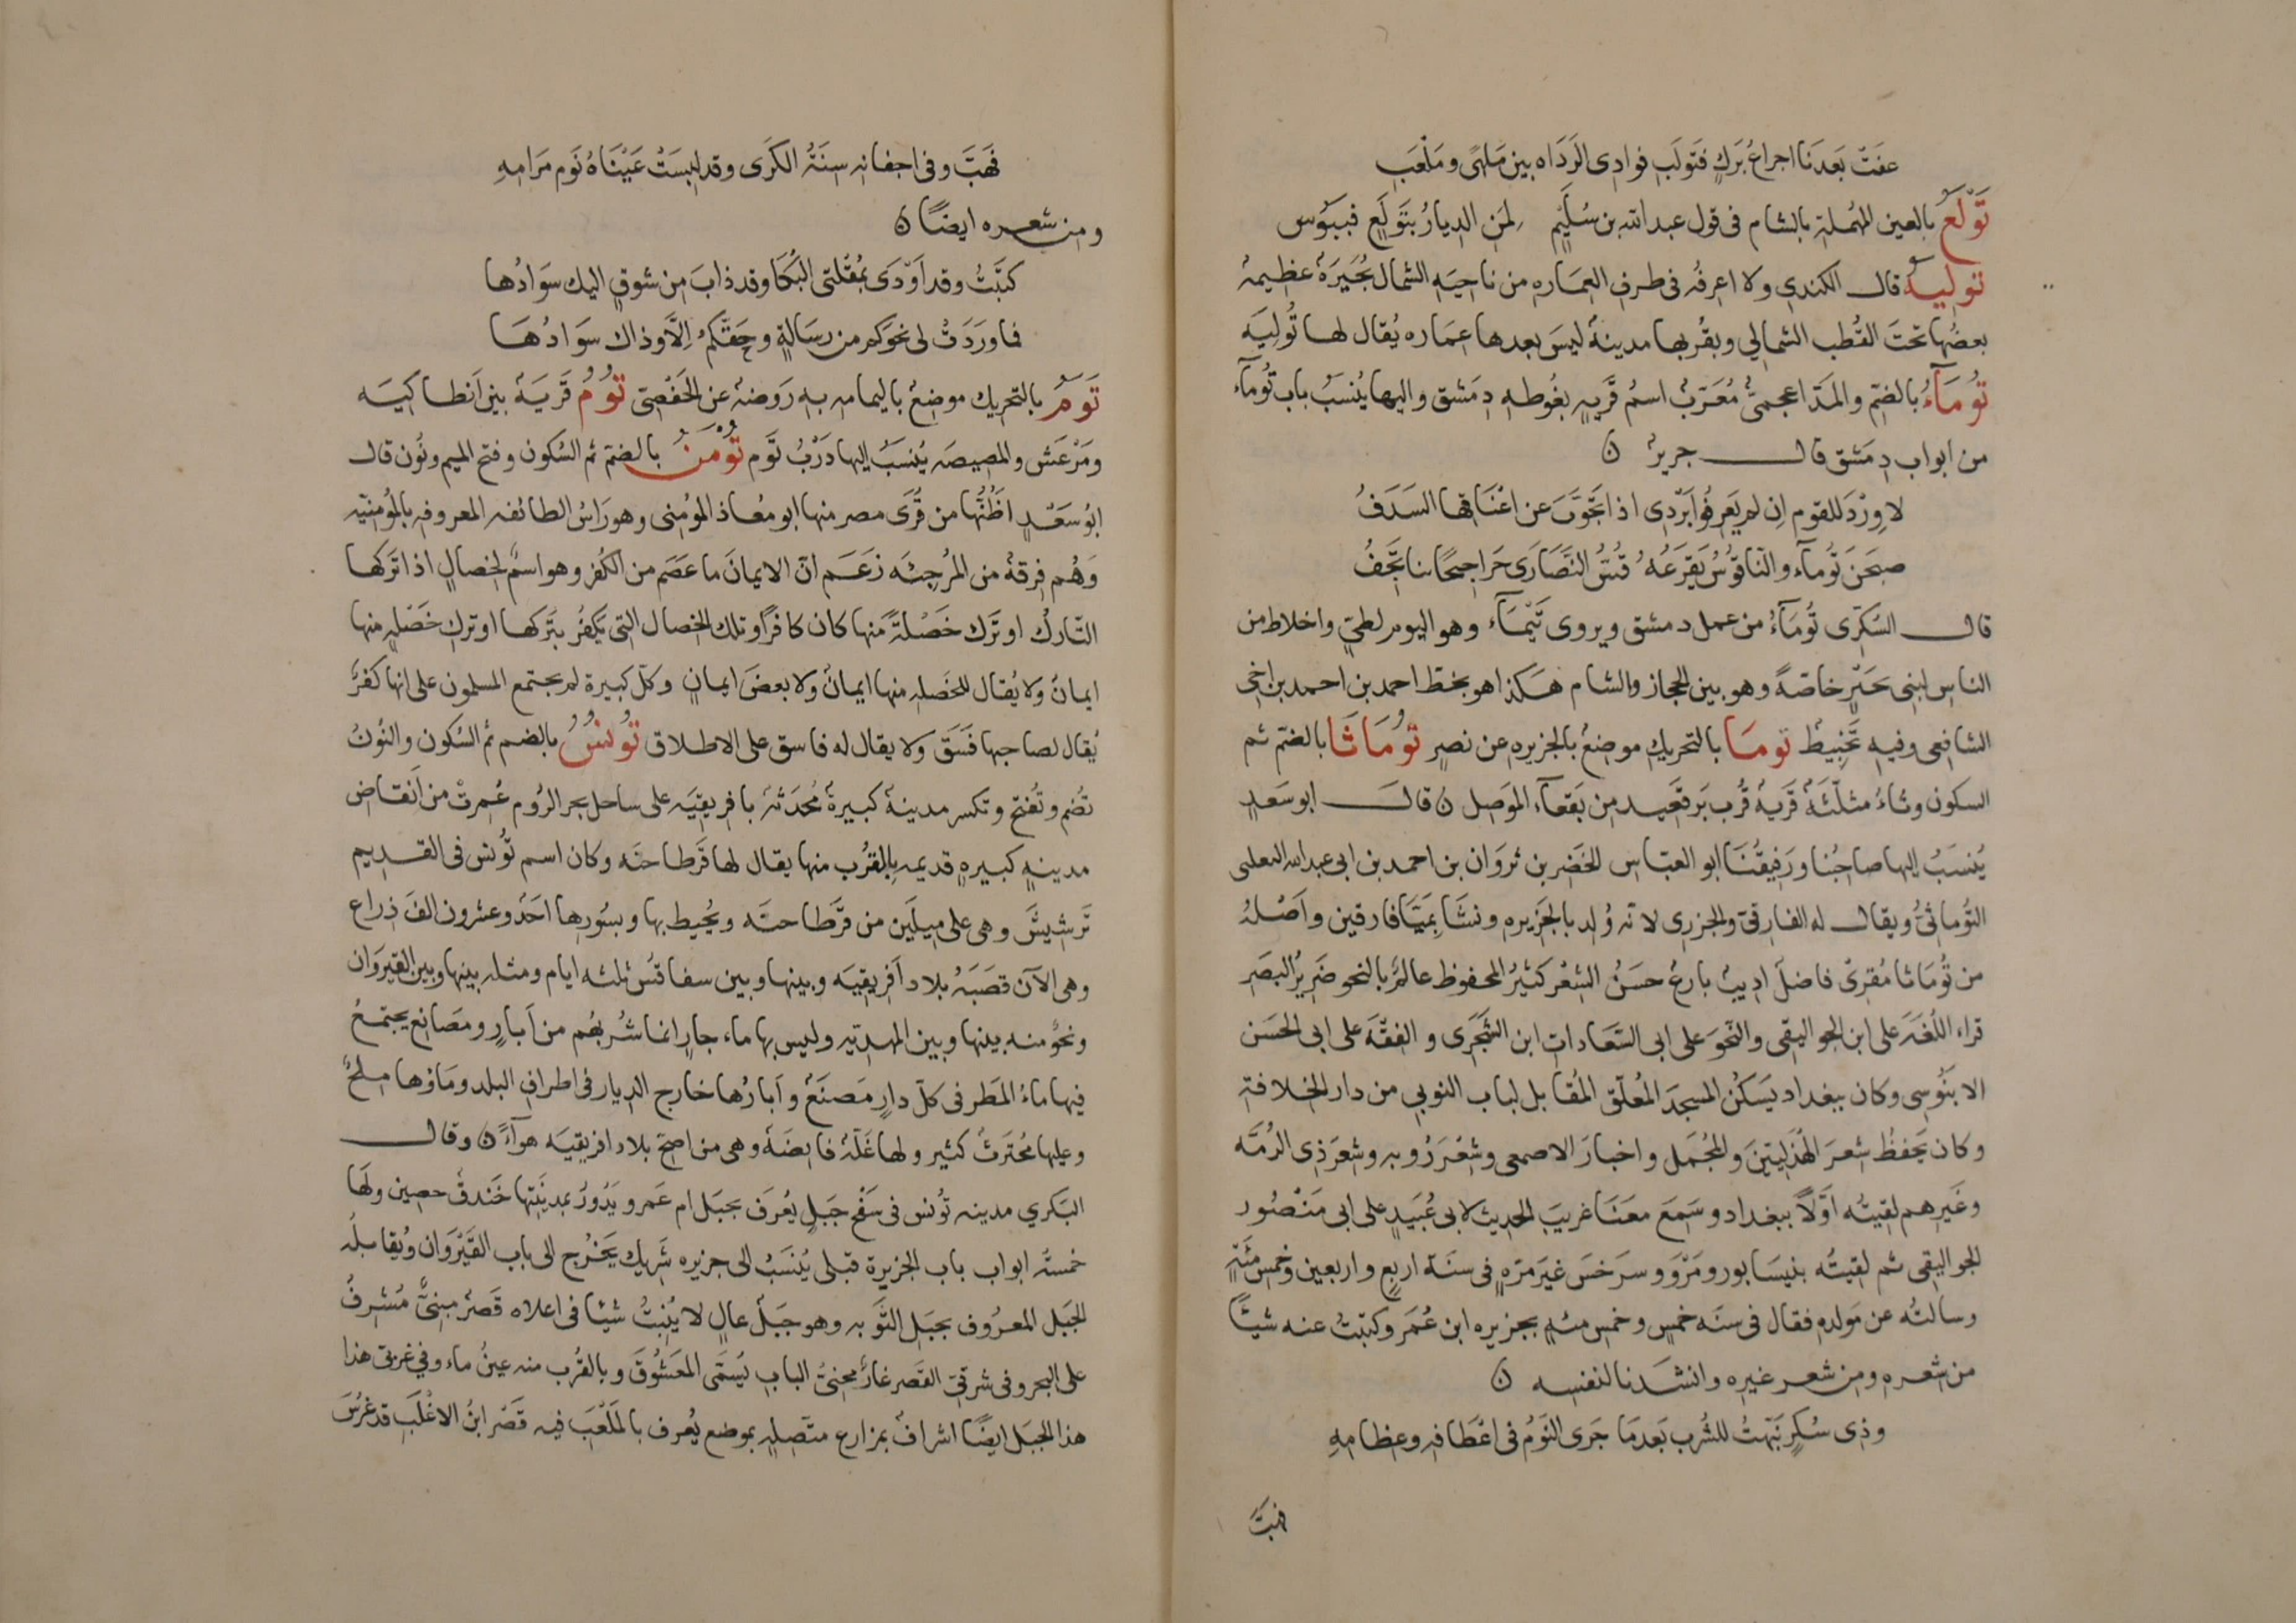 عفَتْ بَعدَنا اجراعُ بَركٍ فتَولَبِ فوادى الرَدَاه بين مَلهىً ومَلْعَبِ
تَوْلَعُ بالعين المُهملةِ بالشام فى قول عبد الله بن سُلَيْمٍ لِمَنِ الديارُ بتَوْلَعٍ فَيبُوسِ
توليَة قال الكندي ولا اعرفُه فى طرفِ العِمَاره من ناحيَهِ الشمال بُحَيرَةٌ عظيمةٌ
بعضُها تحتَ القُطب الشمالي وبقُربها مدينةٌ ليسَ بعدها عِمَاره يُقال لها تُوليَه
تُومَآءُ بالضمّ والمَدّ اعجميٌّ مُعَرّبٌ اسمُ قَريهٍ بغُوطهِ دِمَشق واليها يُنسَبُ باب تُومآء
من ابواب دِمَشق قال جرير ن
لا وِرْدَ للقوم اِن لم يَعرِفُوا بَرَدى اذا تَجَوَّبَ عن اعْنَاقِها السَدَفُ
صبحَنَ تُومآء والنّاقُوسُ يَقرَعُهُ قُسُّ النَّصَارَى حَرَاجيجًا بنا تَجِفُ
قال السُكّرى تُومَآءُ من عمل دمشق ويروى تَيْمَآء وهو اليوم لطَيٍّ واخلاط من
الناس لبنى بحَتْرٍ خاصّةً وهو بين الحجاز والشام هكذا هو بخطّ احمد بن احمد بن اخى
الشافعى وفيهِ تَخبِيط توما بالتحريك موضعٌ بالجزيره عن نصرٍ تُومَاثَا بالضمّ ثم
السكون وثاءٌ مثلّثَةٌ قَريةٌ قُربَ بَرقَعِيد من بَقعآءِ الموَصل ن قال ابو سَعدٍ
يُنسَبُ اليها صاحِبُنا ورَفِيقُنَا ابو العبّاس الخَضر بن ثروَان بن احمد بن ابى عبد الله الثعلبى
التُوماثىُّ ويقال له الفارقىّ والجزرى لانّه وُلد بالجَزيره ونشَا بِميَّافارقين واَصْلهُ
من تُومَاثا مُقرئٌ فاضلٌ اديبٌ بارعٌ حسَنُ الشعْر كثيرُ المحفوظ عالمٌ بالنحو ضَريرُ البَصَرِ
قراء اللُغَةَ على ابن الجواليقى والنّحوَ على ابى السّعَادات ابن الشجَرى والفقْهَ على ابى الحسَن
الابنُوسى وكان ببغداد يَسكُن المسجدَ المُعلّق المُقابل لباب النوبي من دار الخلافة
وكان يَحفظُ شعرَ الهُذَليّين والمُجمَل واخبارَ الاصمعى وشعْرَ رُوبه وشعرَ ذى الرُمّه
وغَيرهم لقيتُه اَوّلاً ببغداد وسَمعَ معَنَا غريبَ الحديث لابى عُبَيدٍ على ابى مَنْصُور
الجواليقى ثم لقيتُه بنيسَابور ومَرْوَ وسرَخسَ غيَر مَرّه فى سنة اربع واربعين وخمس مئَةٍ
وسالتُه عن مَولده فقال فى سنَه خمسٍ وخمس مئهٍ بجزيره ابن عُمَر وكتبتُ عنه شيئًا
من شعره ومن شعر غيره وانشدنا لنفسه ن
وذِى سُكرٍ نَبّهتُ للشُرب بَعدمَا جَرى النَوْمُ فى اعْطَافهِ وعِظامِهِ
فهَبَّ
فَهَبَّ وفى اجفانهِ سِنَةُ الكَرَى وقد لبِسَتْ عَيْنَاهُ نَومَ مَرَامِهِ
ومن شعره ايضًا ن
كتَبتُ وقد اَوْدَى بمُقلتى البُكَا وقد ذابَ من شوقٍ اليك سوَادُها
فما ورَدَتْ لى نحوَكم من رسَالةٍ وحَقّكمُ اِلاّ وذاك سوَادُهَا
تَوَمُ بالتحريك موضِعٌ باليمامه به رَوضةٌ عن الحَفْصىّ تُومُ قَريَةٌ بين اَنطاكيَه
ومَرْعَش والمصيصَه يُنسَبُ اليها دَرْبُ تُوم تُومَنُ بالضمّ ثم السُكون وفتح الميم ونُون قال
ابُو سَعْدٍ اظُنّها من قُرَى مصر منها ابو مُعاذ المؤمنى وهو رَاسُ الطائفه المعروفه بالمُؤمنيّه
وَهُم فِرقةٌ من المُرجِئَه زَعَم انّ الايمانَ ما عصَم من الكُفر وهو اسمٌ لخصالٍ اذا ترَكها
التّاركُ او ترَك خَصْلةً منها كان كافرًا وتلك الخصال التى يَكفُر بتَركها او تركِ خَصْلهٍ منها
ايمانٌ ولا يُقال للخَصله منها ايمانٌ ولا بعضُ ايمانٍ وكلّ كبيرة لم يجتمع المسلمون على انها كفرٌ
يُقال لصاحبها فَسَقَ ولا يقال له فاسق على الاطلاق تُونسُ بالضم ثم السُكون والنُونُ
تُضم وتُفتح وتكسر مدينةٌ كبيرةٌ مُحدَثةٌ بافريقيَه على ساحل بحر الرُوم عُمرتْ من اَنقاض
مدينهٍ كبيرهٍ قديمه بالقرُب منها يقال لها قَرطاجنَه وكان اسم تُونس فى القديم
تَرشيشَ وهى على ميلَين من قَرطاجنَه ويُحيط بها وبسُورها احَدٌ وعشرون الفَ ذراع
وهى الآن قصَبَهُ بلاد اَفريقيَه وبينها وبين سفاقُس ثلثه ايام ومثله بينها وبين القيروَان
ونحوٌ منه بينها وبين المهديّه وليس بها ماء جارٍ انما شُربهُم من اَبارٍ ومصَانع يجتمعُ
فيها ماءُ المَطَر فى كلّ دارٍ مَصنَعٌ واَبارُها خارج الديار فى اطراف البلد ومَاؤها مِلحٌ
وعليها مُحتَرثٌ كثير ولها غَلّةٌ فايضَةٌ وهى من اصحّ بلاد افريقيَه هوآءً ن وقال
البَكري مدينه تُونس فى سَفْح جَبلٍ يُعرَف بجَبل ام عَمرو يَدُورُ بمدينَتِها خَندقٌ حصين ولهَا
خمسَةُ ابواب باب الجزيرة قبلى يُنسَبُ الى جزيره شَريك يَخْرُج الى باب القَيْروَان ويُقابلُه
الجبَل المعرُوف بجَبل التّوبه وهو جبَلٌ عالٍ لا يُنبتُ شيئا فى اعلاه قَصرٌ مبنىٌّ مُشرفٌ
على البحر وفى شرقىّ القَصر غارٌ محنىُّ الباب يُسَمّى المعَشُوقَ وبالقرُب منه عينُ ماء وفي غربىّ هذا
هذا الجبَل ايضًا اشرافٌ بمزارع متّصِلهٍ بموضع يُعرف بالمَلْعَبَ فيه قَصْرُ ابنُ الاغْلَبِ قد غرُسَ